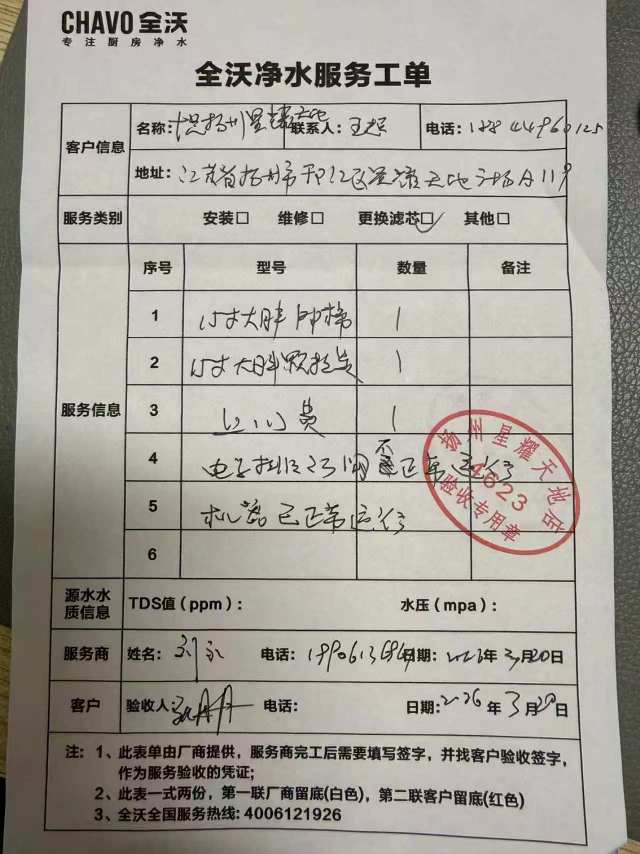 CHAVO 全沃
专注厨房净水
全沃净水服务工单
客户信息
名称: 扬州星耀天地 联系人: 王 电话: 18844960125
地址: 江苏省扬州市邗江区星耀天地广场A119
服务类别 安装□ 维修□ 更换滤芯□ 其他□
服务信息
序号 型号 数量 备注
1 15寸大胖 PP棉 1
2 15寸大胖颗粒炭 1
3 上门费 1
4 电子 不正常运行
5 机器已正常运行
6
扬州星耀天地店
4623
验收专用章
源水水质信息 TDS值（ppm）: 水压（mpa）:
服务商 姓名: 刘 电话: 日期: 2026年3月20日
客户 验收人: 电话: 日期: 2026年3月20日
注: 1、此表单由厂商提供，服务商完工后需要填写签字，并找客户验收签字，
作为服务验收的凭证;
2、此表一式两份，第一联厂商留底(白色)，第二联客户留底(红色)
3、全沃全国服务热线: 4006121926